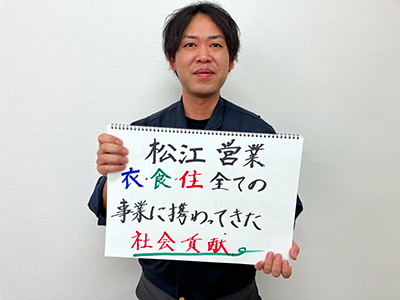 松江 営業
衣・食・住 全ての
事業に携わってきた
社会貢献